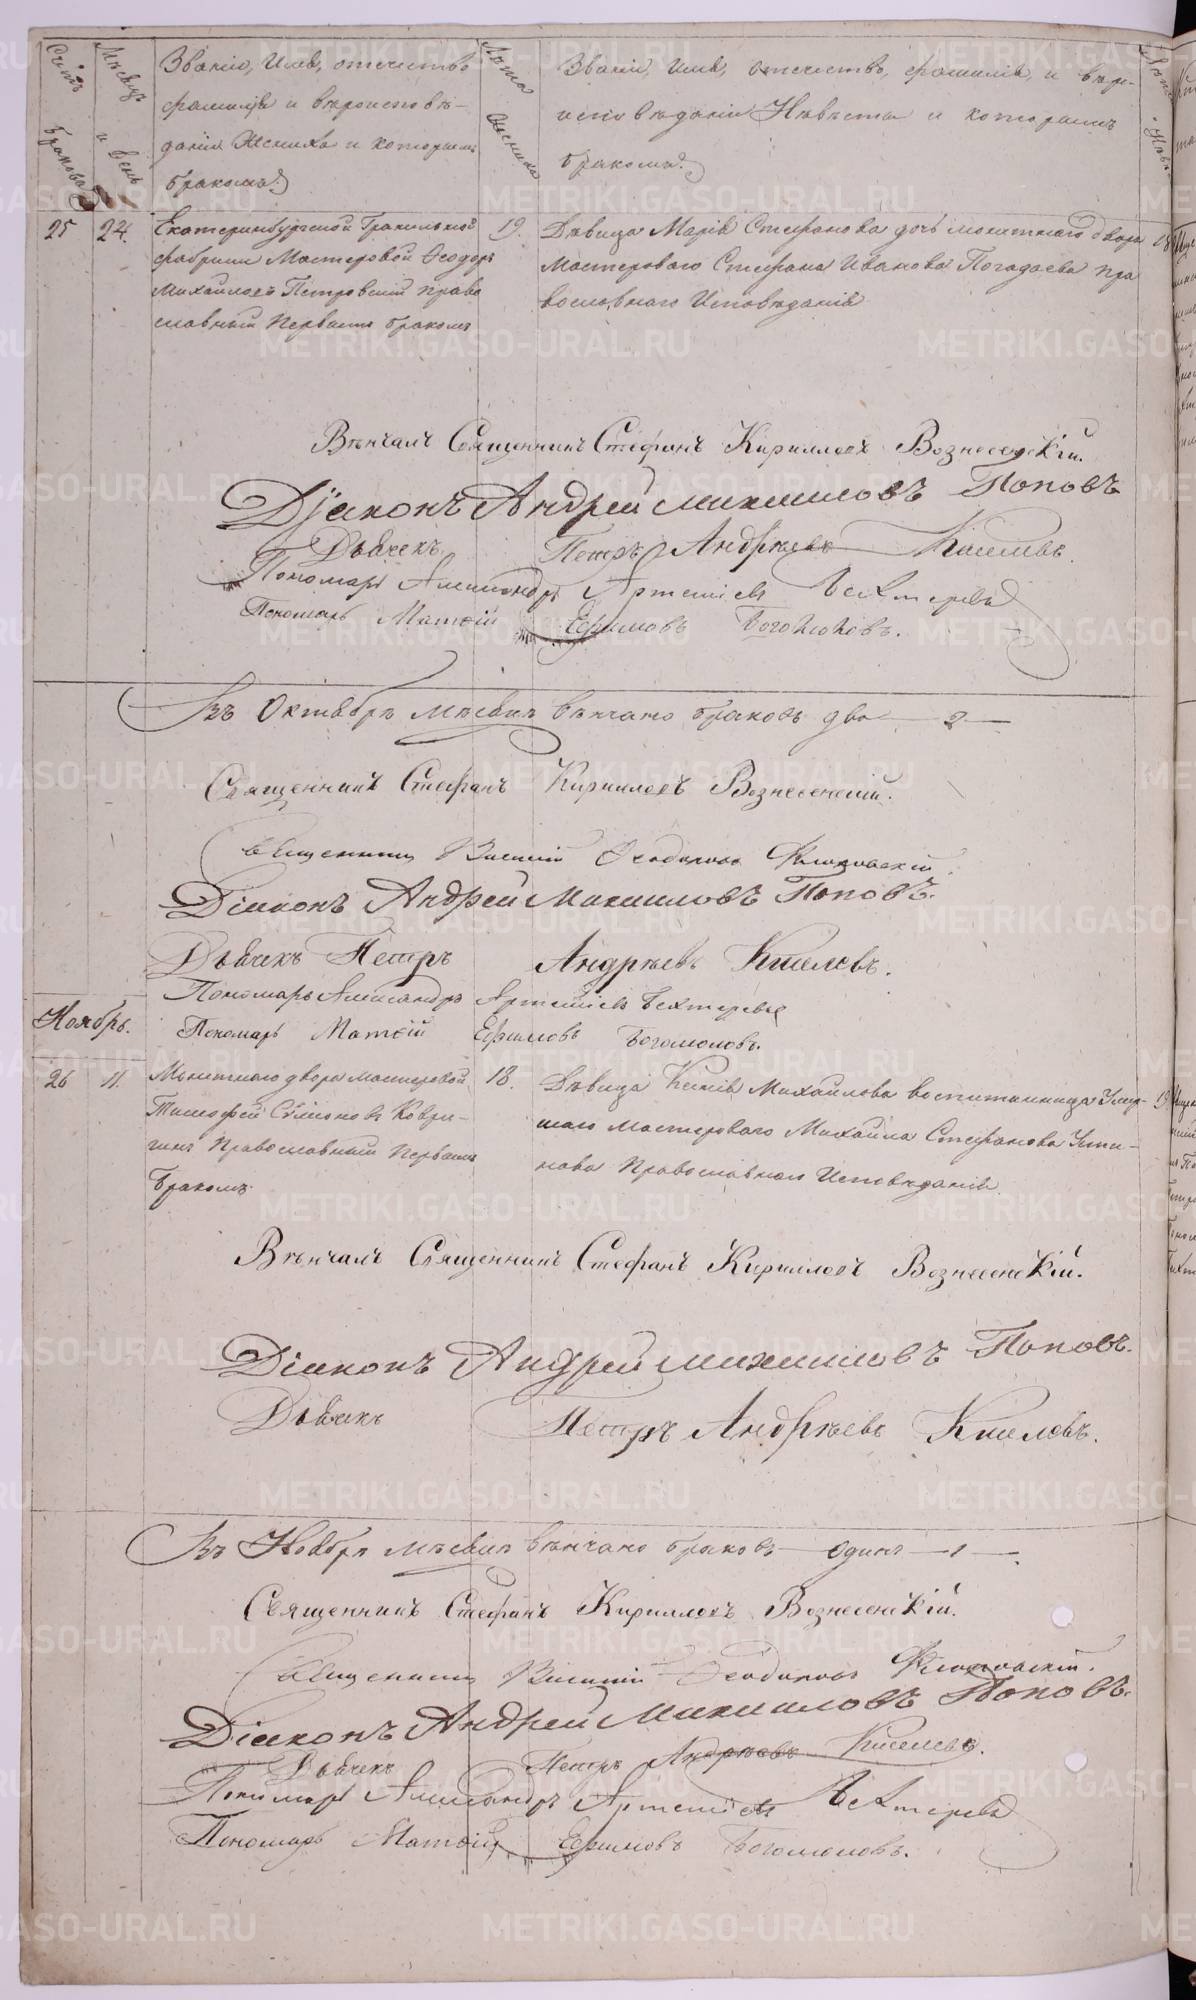 Счетъ браковъ
Мѣсяцъ и день
Званіе, Имя, отечество
фамилія и вѣроисповѣ-
даніе Жениха и которымъ
бракомъ?
Лѣта Жениха
Званіе, Имя, отечество, фамилія, и вѣро-
исповѣданіе Невѣсты и которымъ
бракомъ?
25
24.
Екатеринбургской Гранильной
фабрики Мастеровой Ѳеодоръ
Михайловъ Петровскій право
славный Первымъ бракомъ
19.
Дѣвица Марія Стефанова дочь монетнаго двора
Мастероваго Стефана Иванова Погадаева пра
вославнаго Исповѣданія
Вѣнчалъ Священникъ Стефанъ Кирилловъ Вознесенскій.
Діаконъ Андрей Михаиловъ Поповъ
Дьячекъ Петръ Андрѣевъ Киселевъ.
Пономарь Александръ Артеміевъ Бехтеревъ
Пономарь Матѳій Ефимовъ Богомоловъ.
Въ Октябрѣ мѣсяцѣ вѣнчано браковъ два — 2 —
Священникъ Стефанъ Кирилловъ Вознесенскій.
Священникъ Василій Ѳеодоровъ
Діаконъ Андрей Михаиловъ Поповъ.
Дьячекъ Петръ Андрѣевъ Киселевъ.
Пономарь Александръ Артеміевъ Бехтеревъ
Ноябрь.
Пономарь Матѳій Ефимовъ Богомоловъ.
26
11.
Монетнаго двора мастеровой
Тимофей Симоновъ Коври-
гинъ Православный Первымъ
Бракомъ
18.
Дѣвица Михайлова воспитанница Умер-
шаго мастероваго Михайла Стефанова Усти-
нова Православнаго Исповѣданія
19
Вѣнчалъ Священникъ Стефанъ Кирилловъ Вознесенскій.
Діаконъ Андрей Михаиловъ Поповъ.
Дьячекъ Петръ Андрѣевъ Киселевъ.
Въ Ноябрѣ мѣсяцѣ вѣнчано браковъ — одинъ — 1 —.
Священникъ Стефанъ Кирилловъ Вознесенскій.
Священникъ Василій Ѳеодоровъ
Діаконъ Андрей Михаиловъ Поповъ.
Дьячекъ Петръ Андрѣевъ Киселевъ.
Пономарь Александръ Артеміевъ Бехтеревъ
Пономарь Матѳій Ефимовъ Богомоловъ.
METRIKI.GASO-URAL.RU